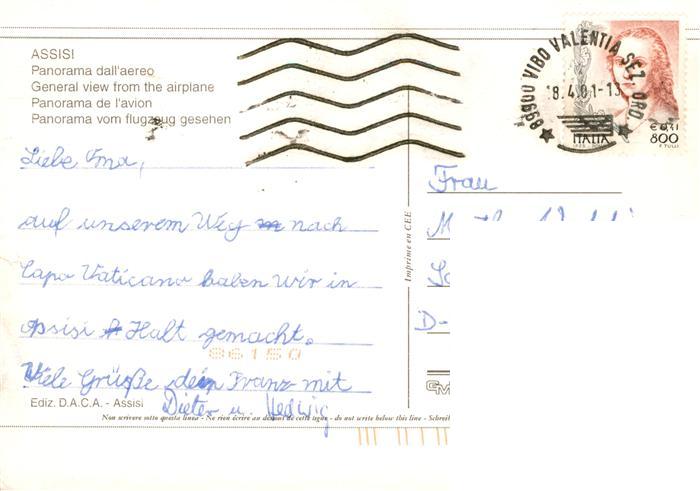 ASSISI
Panorama dall'aereo
General view from the airplane
Panorama de l'avion
Panorama vom flugzeug gesehen
89900 VIBO VALENTIA SEZ. ORD.
8.4.01-13
€ 0,41
800
ITALIA
Liebe Oma,
auf unserem Weg nach
Capo Vaticano haben wir in
Assisi Halt gemacht.
Viele Grüße dein Franz mit
Dieter u. Hedwig
86150
Frau
D-
Imprime en CEE
Ediz. D.A.C.A. - Assisi
Non scrivere sotto questa linea - Ne rien écrire au dessous de cette ligne - do not write below this line - Schreib